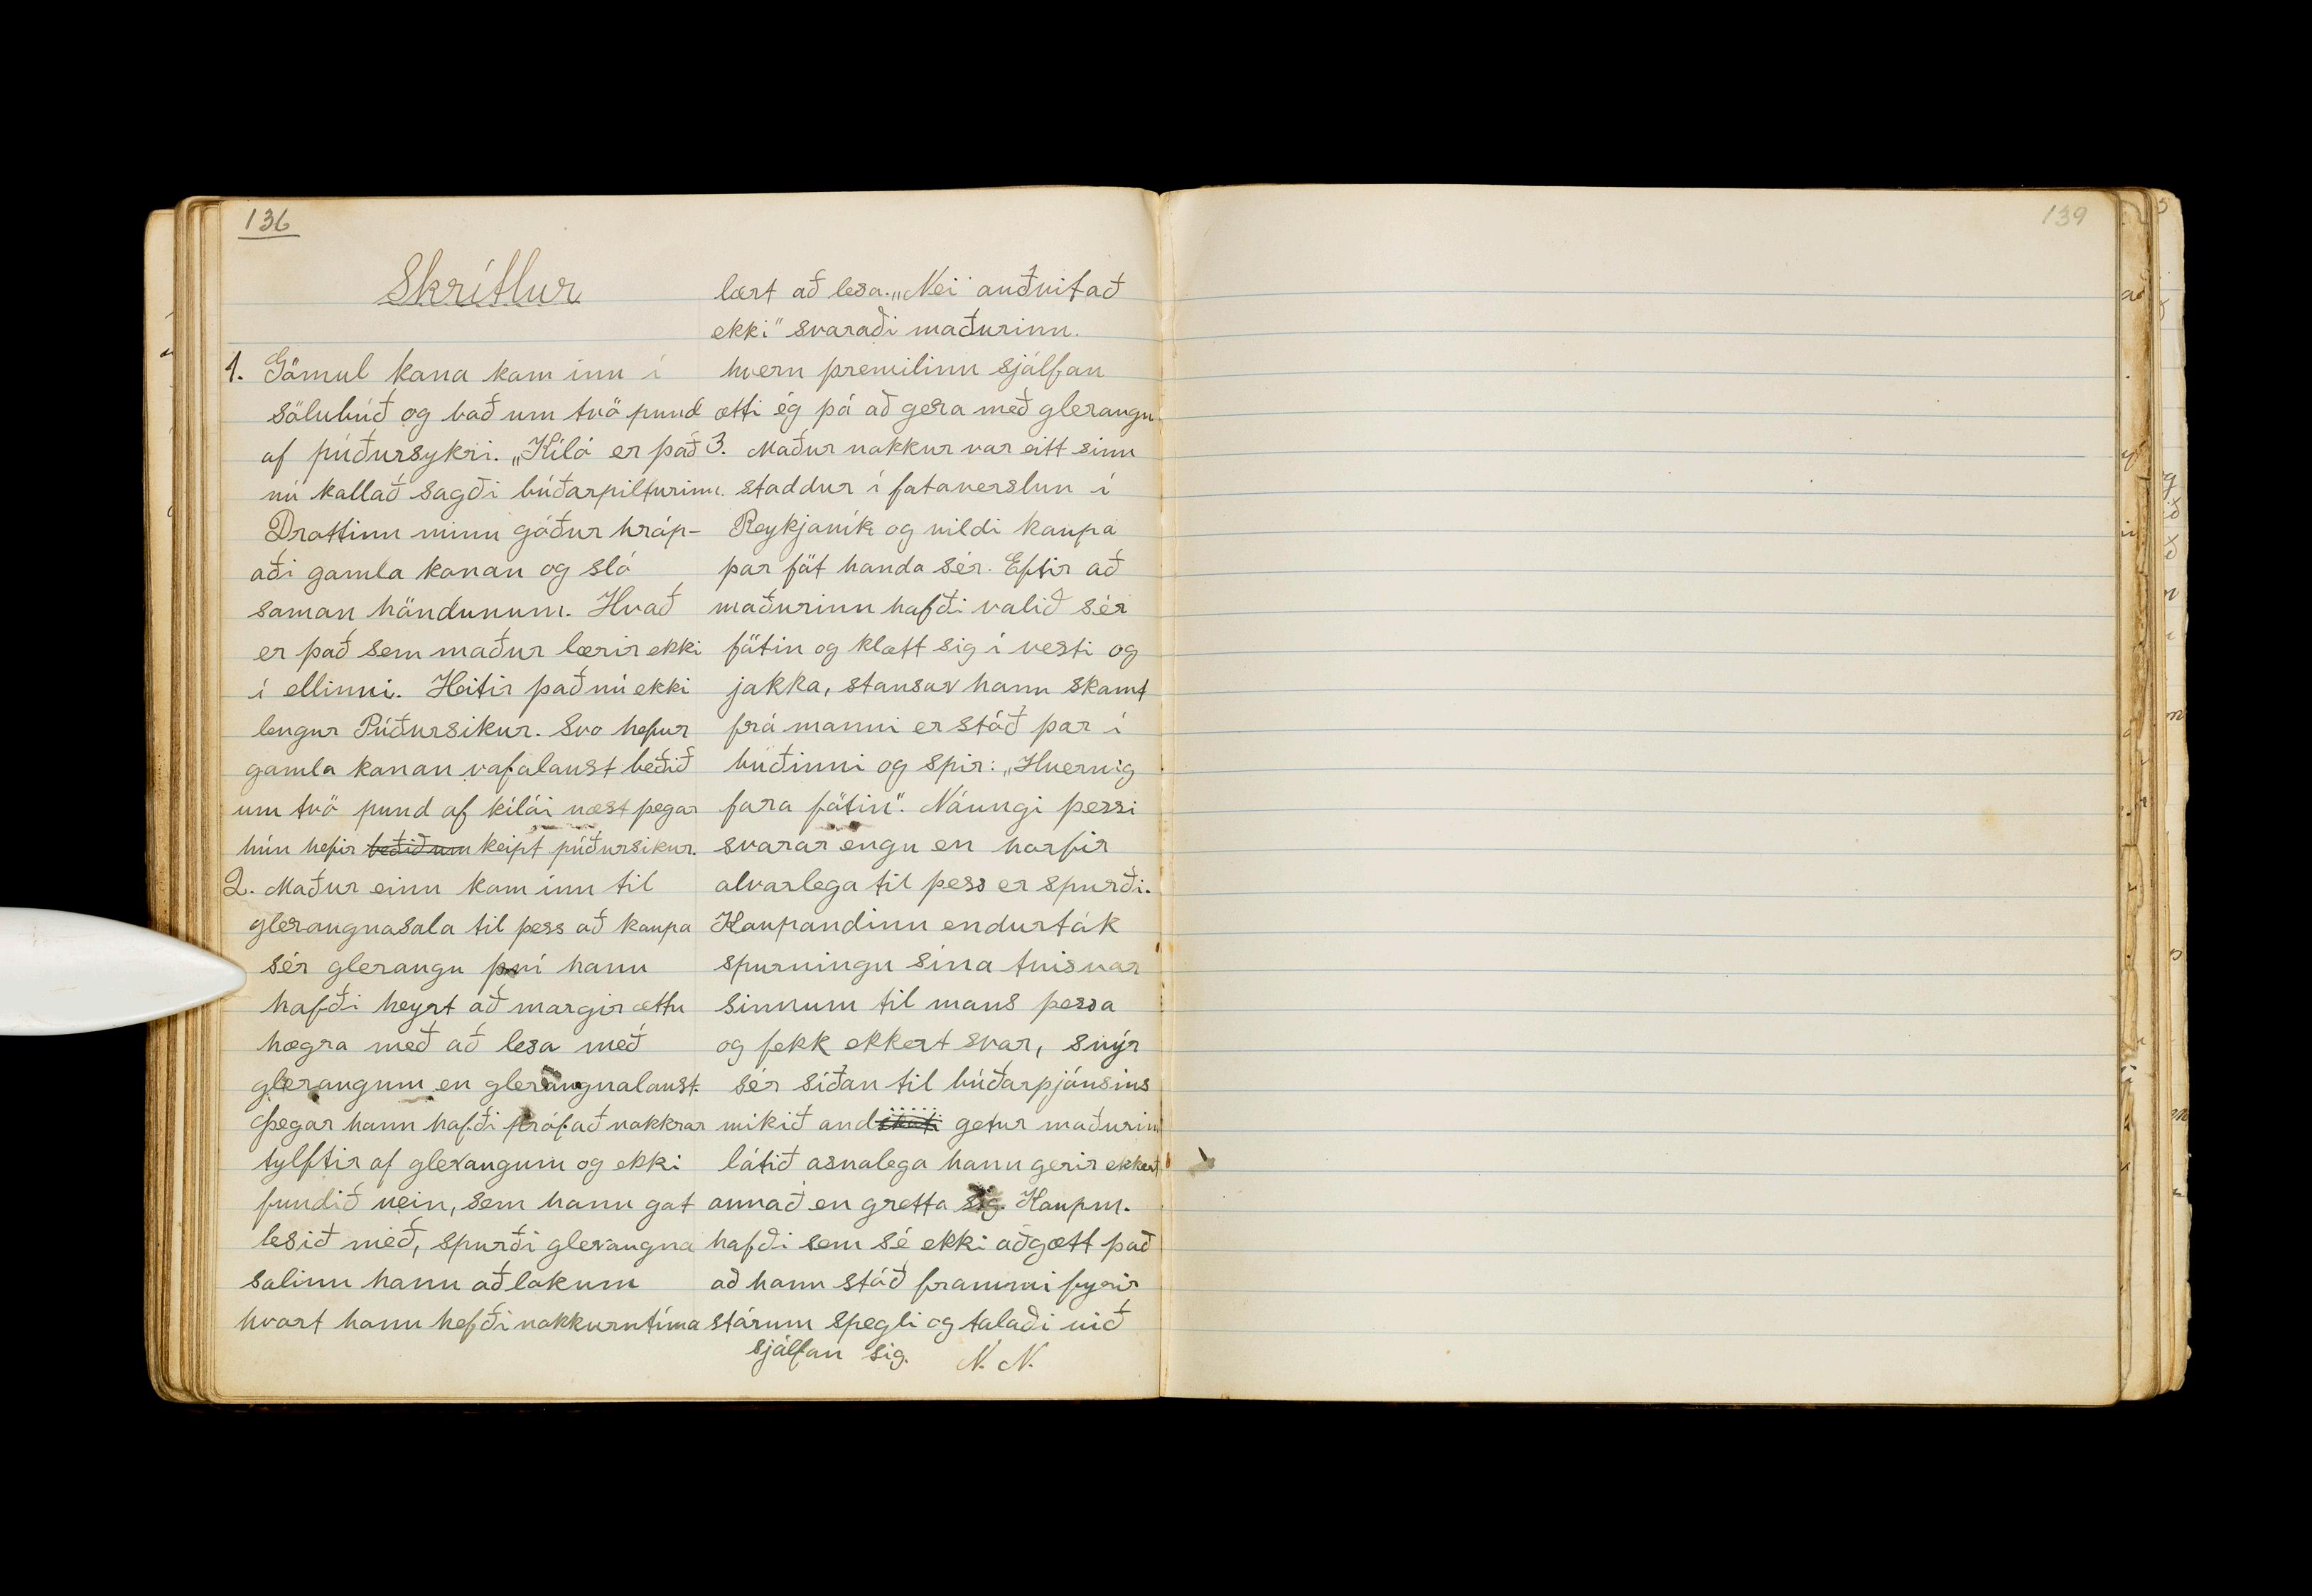 136
Skrítlur
1. Gömul kona kom inn í
sölubúð og bað um tvö pund
af púðursykri. „Kíló er það
nú kallað sagði búðarpilturinn.
Drottinn minn góður hróp-
aði gamla konan og sló
saman höndunum. Hvað
er það sem maður lærir ekki
í ellinni. Heitir það nú ekki
lengur Púðursikur. Svo hefur
gamla konan vafalaust beðið
um tvö pund af kílói næst þegar
hún hefir beðið um keipt púðursikur.
2. Maður einn kom inn til
gleraugnasala til þess að kaupa
sér gleraugu því hann
hafði heyrt að margir ættu
hægra með að lesa með
gleraugum en gleraugnalaust.
Þegar hann hafði prófað nokkrar
tylftir af gleraugum og ekki
fundið nein, sem hann gat
lesið með, spurði gleraugna
salinn hann að lokum
hvort hann hefði nokkurntíma
lært að lesa. „Nei auðvitað
ekki" svaraði maðurinn.
hvern þremilinn sjálfan
ætti ég þá að gera með gleraugu
3. Maður nokkur var eitt sinn
staddur í fataverslun í
Reykjavík og vildi kaupa
þar föt handa sér. Eftir að
maðurinn hafði valið sér
fötin og klætt sig í vesti og
jakka, stansar hann skamt
frá manni er stóð þar í
búðinni og spir: „Hvernig
fara fötin". Náungi þessi
svarar engu en horfir
alvarlega til þess er spurði.
Kaupandinn endurtók
spurningu sína tvisvar
sinnum til mans þessa
og fekk ekkert svar, snýr
sér síðan til búðarþjónsins
mikið andskoti getur maðurinn
látið asnalega hann gerir ekkert
annað en gretta sig. Kaupm.
hafði sem sé ekki aðgætt það
að hann stóð frammi fyrir
stórum spegli og talaði við
sjálfan sig. N. N.
139